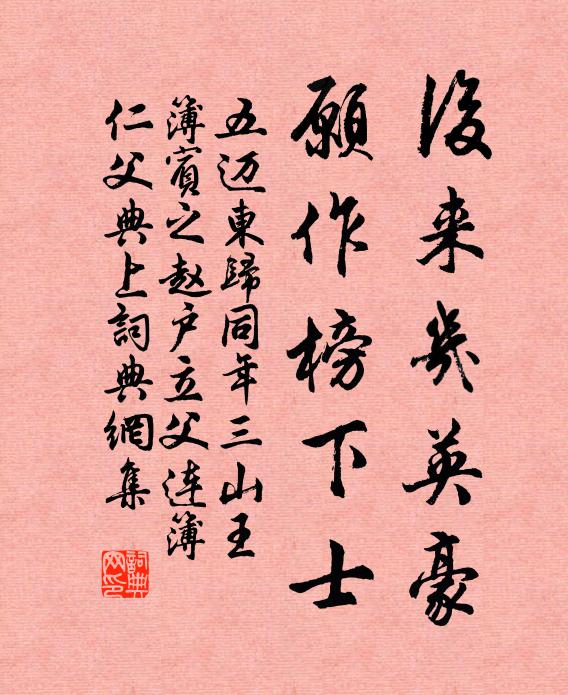 後来幾英豪
願作榜下士
五迈東歸同年三山王
簿賓之赵户立父连簿
仁父典上詞典網集
詞典网印